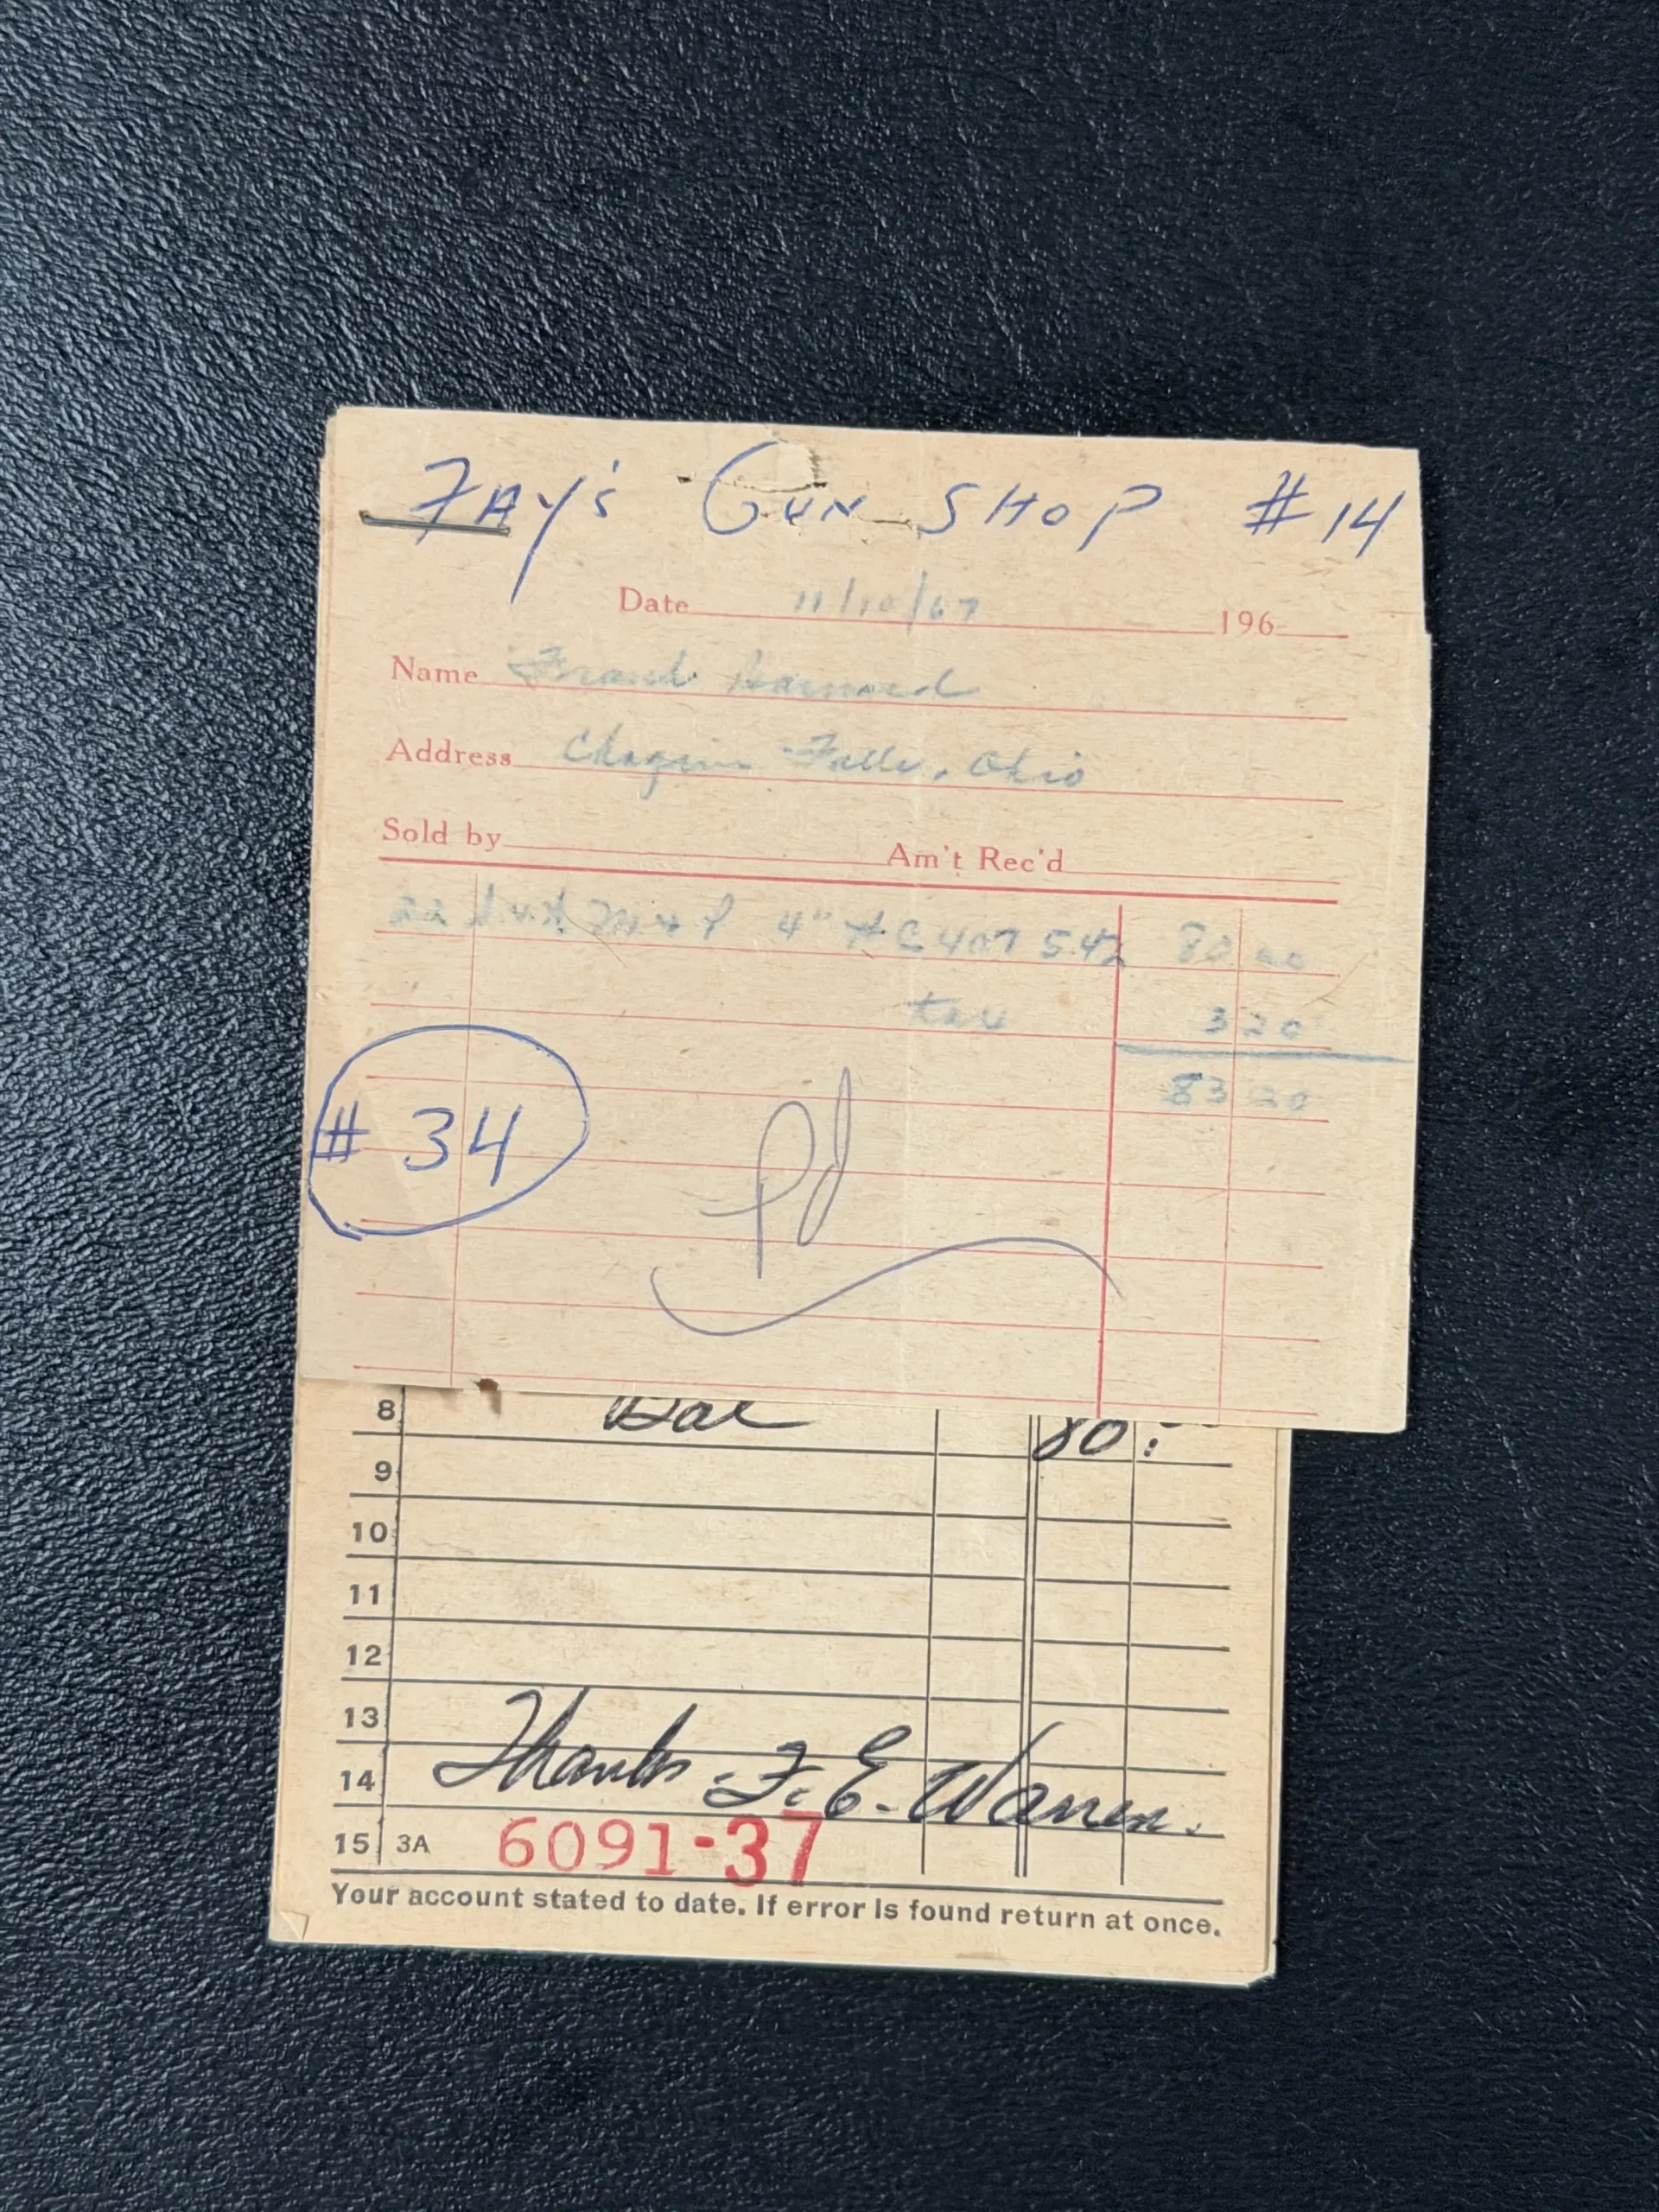 FAY'S GUN SHOP #14
Date 11/10/67 196
Name Frank Barnard
Address Chagrin Falls, Ohio
Sold by Am't Rec'd
22 S & W M & P 4" # C 407 542 80 00
tax 3 20
83 20
# 34
pd
8 Bal 80.
9
10
11
12
13
14 Thanks F. E. Warren.
15 3A 6091-37
Your account stated to date. If error is found return at once.